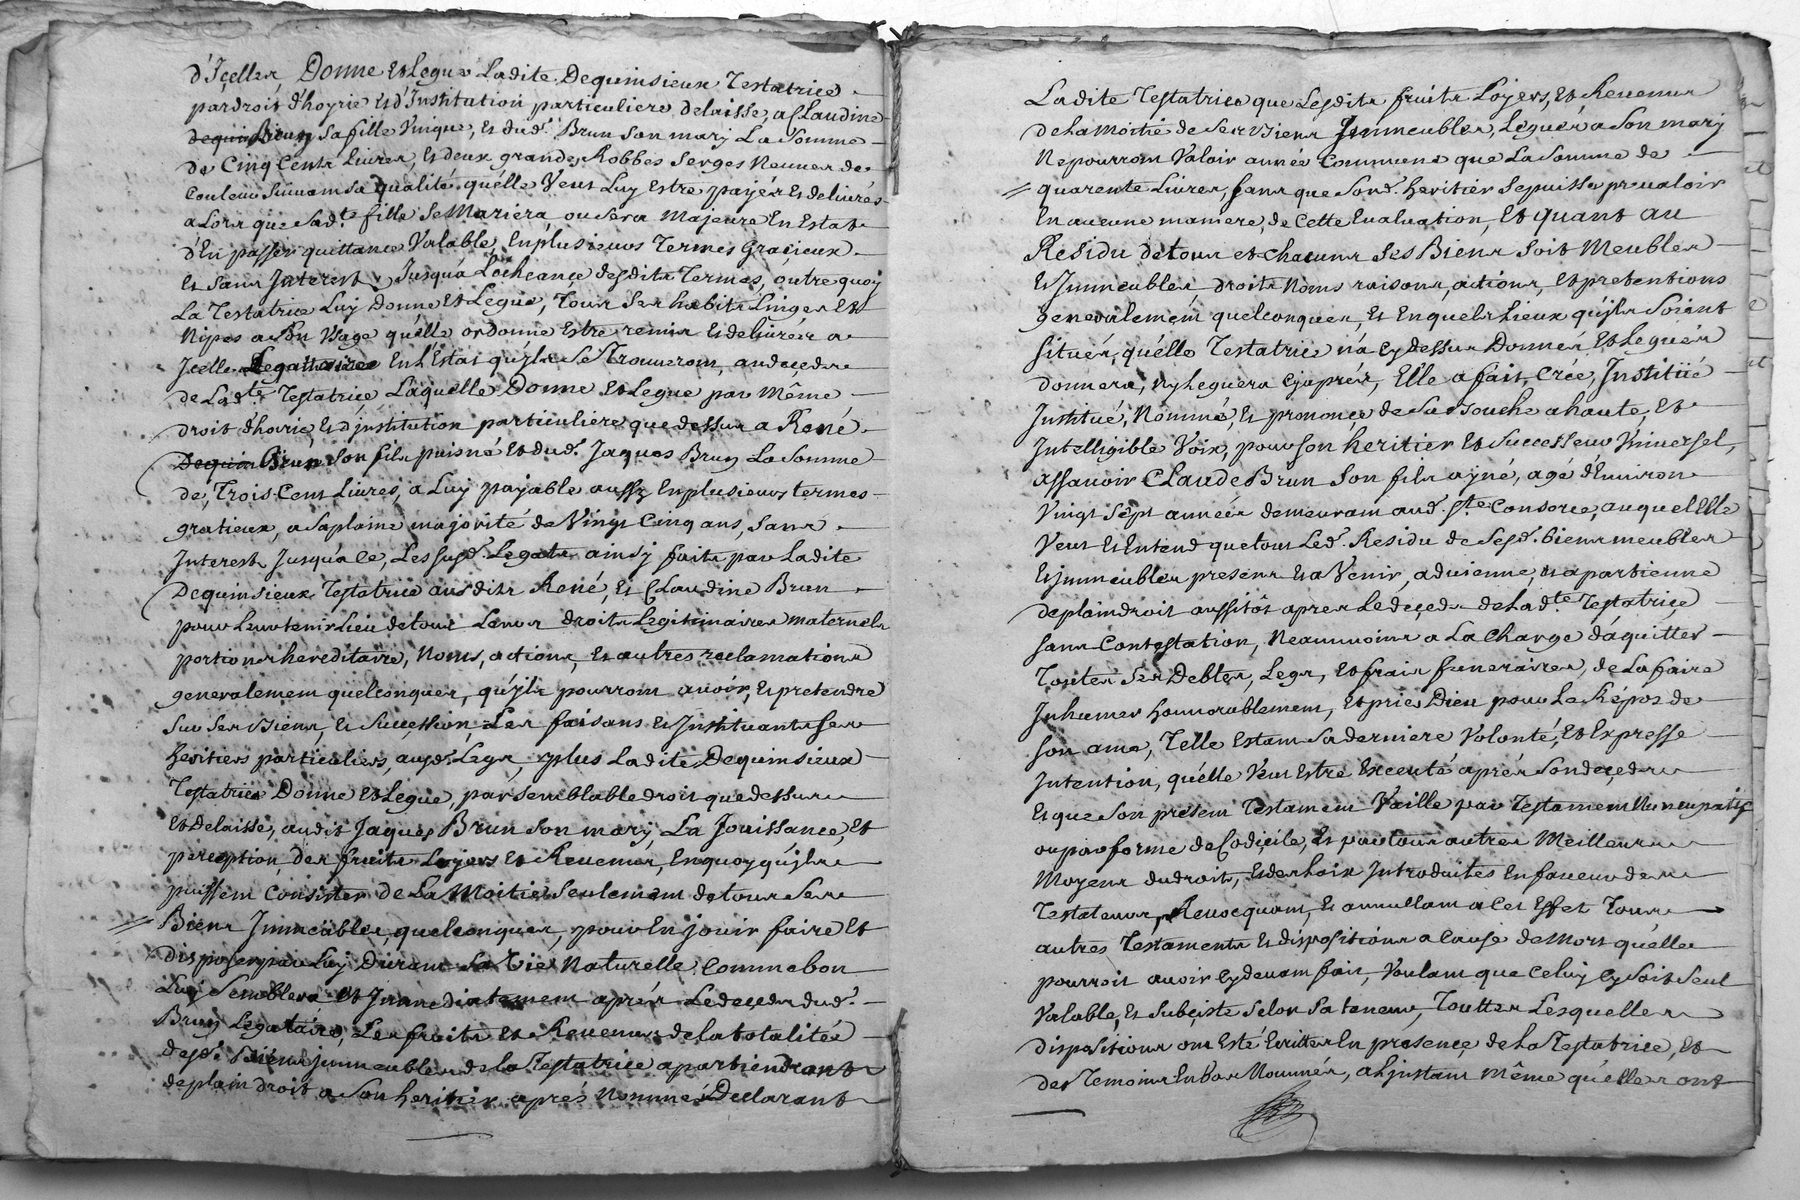 d'Icelles, Donne et Legue Ladite Dequinsieux Testatrice
par droit d'hoyrie et d'Institution particuliere delaisse, a Claudine
dequin Brun sa fille Unique, et dud. Brun son mary La somme
de Cinq Cents Livres, et deux grandes Robbes Serges Neuves de
Couleur suivant sa qualité qu'elle veut Luy Estre payées et delivrés
a Lors que sad.te fille se Mariera ou sera Majeure En Estat
d'En passer quittance Valable, En plusieurs Termes Gracieux
Et sans Interest, Jusqu'a Locheance desdits Termes, outre quoy
La Testatrice Luy Donne et Legue, Tous ses habits Linges et
Nipes a son Usage qu'elle ordonne Estre remis et delivrées a
Icelle Legattairee En L'Estat qu'ils se Trouveront, au deceds
de Lad.te Testatrice Laquelle Donne et Legue par Même
droit d'hoirie, et d'institution particuliere que dessus a René
Dequin Brun son fils puisné et dud. Jaques Brun La somme
de, Trois Cent Livres, a Luy payable aussy En plusieurs termes
gratieux, a sa plaine majorité de Vingt Cinq ans, sans
Interests Jusqu'a Ce, Les susd. Legats ainsy faits par Ladite
Dequinsieux Testatrice ausdits René, et Claudine Brun
pour Leur tenir Lieu de tous Leurs droits Legitimaires maternels
portions hereditaire, Noms, actions, et autres reclamations
generalement quelconques, qu'ils pourront avoir, et pretendre
sur ses Biens, et succession, Les faisans et Instituants ses
heritiers particuliers, ausd. Legs, plus Ladite Dequinsieux
Testatrice Donne et Legue, par semblable droit que dessus
Et Delaisse, audit Jaques Brun son mary, La Jouissance, et
perception des fruits Loyers et Revenus, En quoy qu'ils
puissent Consister de La Moitié seulement de tous ses
Biens Immeubles, quelconques, pour En jouir faire et
disposer par Luy Durant sa Vie Naturelle, Comme bon
Luy semblera Et Immediatement aprés Le deceds dud.
Brun Legataire, Les fruits et Revenus de la totalitée
desd. Biens immeubles de la Testatrice apartiendront
de plain droit a son heritier aprés Nommé, Declarant
Ladite Testatrice que Lesdits fruits Loyers, et Revenus
de La Moitié de ses Biens Immeubles, Legués a son mary
Ne pourront Valoir année Commune que La somme de
quarente Livres, sans que sond. heritier se puisse prevaloir
En aucune maniere, de Cette Evaluation, Et quant au
Residu de tous et chacuns ses Biens soit Meubles
Et Immeubles droits Noms raisons, actions, et pretentions
generalement quelconques, et En quels Lieux qu'ils soient
situés, qu'elle Testatrice n'a Cy dessus Donnés et Legués
donnera, ny Leguera Cy aprés, Elle a fait, Créé, Instituïé
Institué, Nommé, et prononcé de sa Bouche a haute, et
Intelligible Voix, pour son heritier et successeur Universel,
assavoir Claude Brun son fils ayné, agé d'Environ
Vingt sept années demeurant aud. S.te Consorce, auquel Elle
Veut et Entend que tout Led. Residu de sesd. biens meubles
Et immeubles presens et a Venir, advienne, et apartienne
de plain droit aussitôt apres Le deceds de Lad.te Testatrice
sans Contestation, Neanmoins a La Charge d'aquitter
Toutes ses Debtes, Legs, et frais funeraires, de La faire
Inhumer honnorablement, et prier Dieu pour Le Répos de
son ame, Telle Estant sa derniere Volonté, et Expresse
Intention, qu'elle Veut Estre Executé aprés son deceds
Et que son present Testament Vaille par Testament Nuncupatif
ou par forme de Codicile, et par tous autres Meilleurs
Moyens du droit, et des Loix Introduites En faveur des
Testateurs, Revocquant, et annullant a Cet Effet Tous
autres Testaments et dispositions a Cause de Mort qu'elle
pourroit avoir Cy devant fait, Voulant que Celuy Cy soit seul
Valable, et subciste selon sa teneur, Touttes Lesquelles
dispositions ont Esté Ecrittes En presence de La Testatrice, Et
des Temoins En bas Nommés, a L'instant Même qu'elles ont